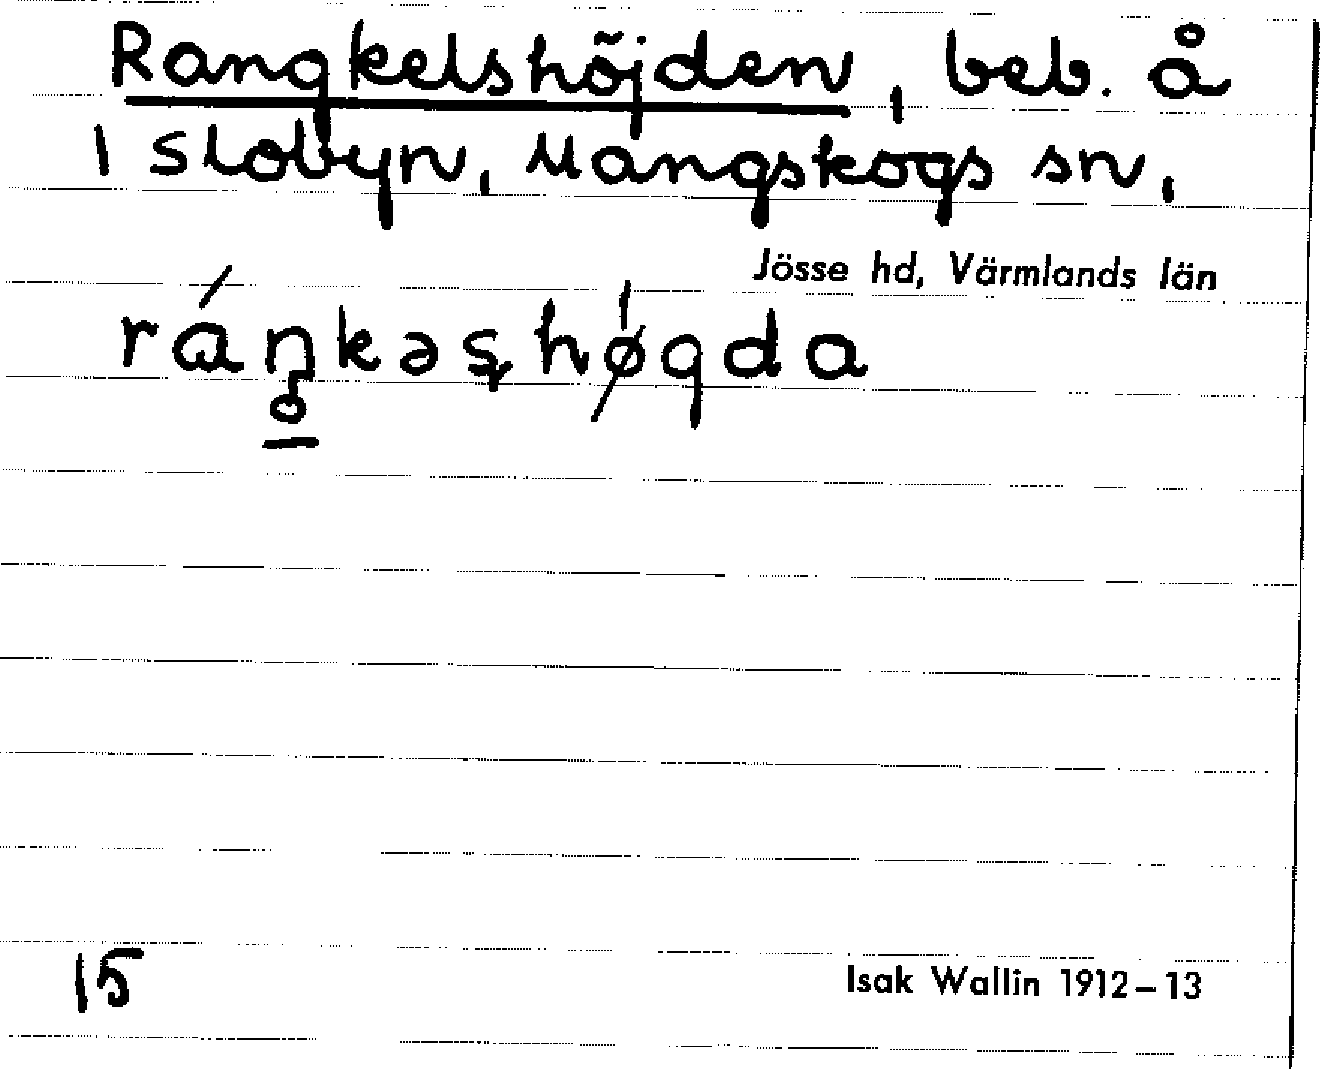 Rangkelshöjden, beb. å
1 Slobyn, Mangskogs sn,
Jösse hd, Värmlands län
ráŋkəʂhø̷gda
15
Isak Wallin 1912–13